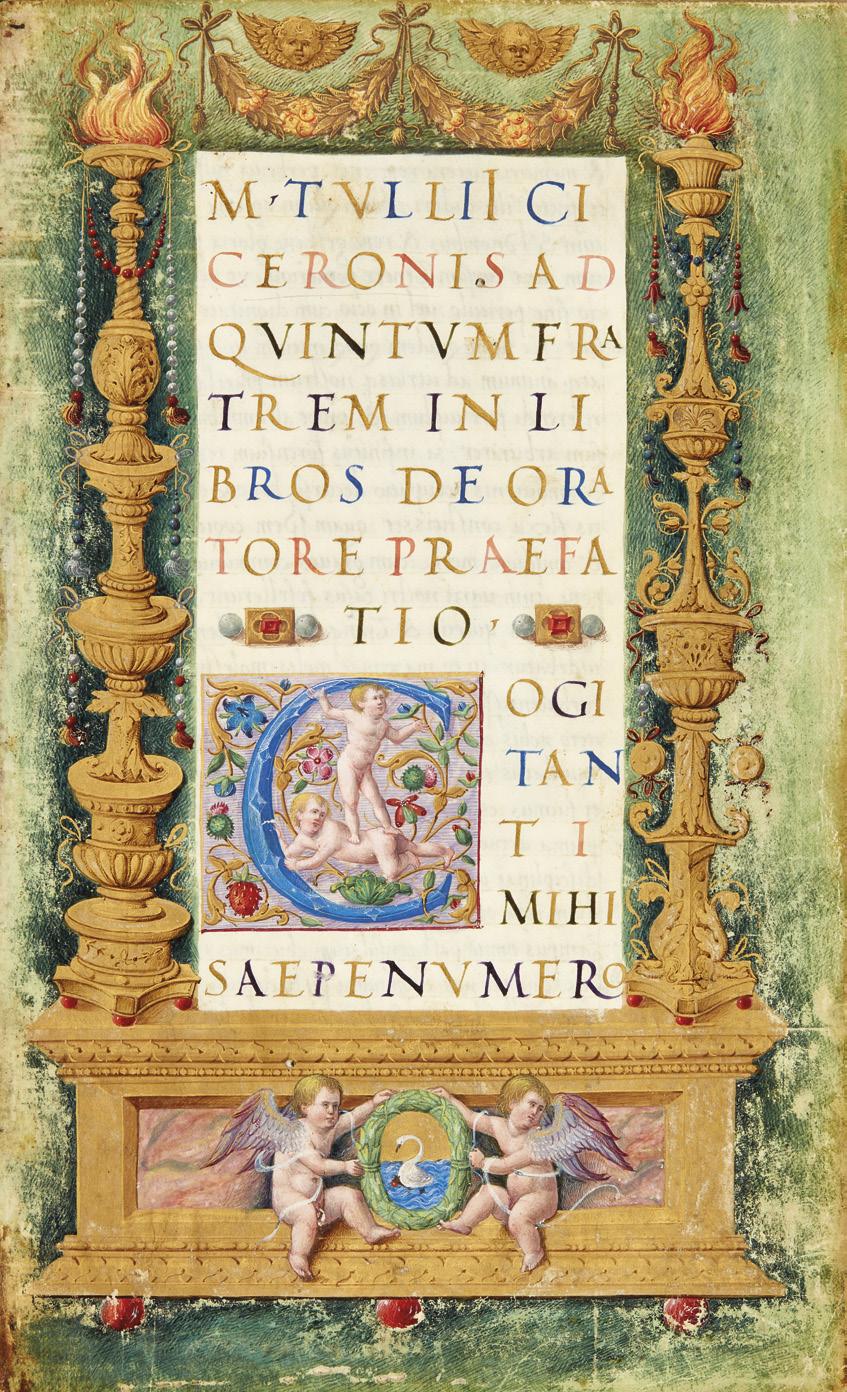 M·TVLLII CI
CERONIS AD
QVINTVM FRA
TREM IN LI
BROS DE ORA
TORE PRAEFA
TIO·
C OGI
TAN
TI
MIHI
SAEPENVMERO